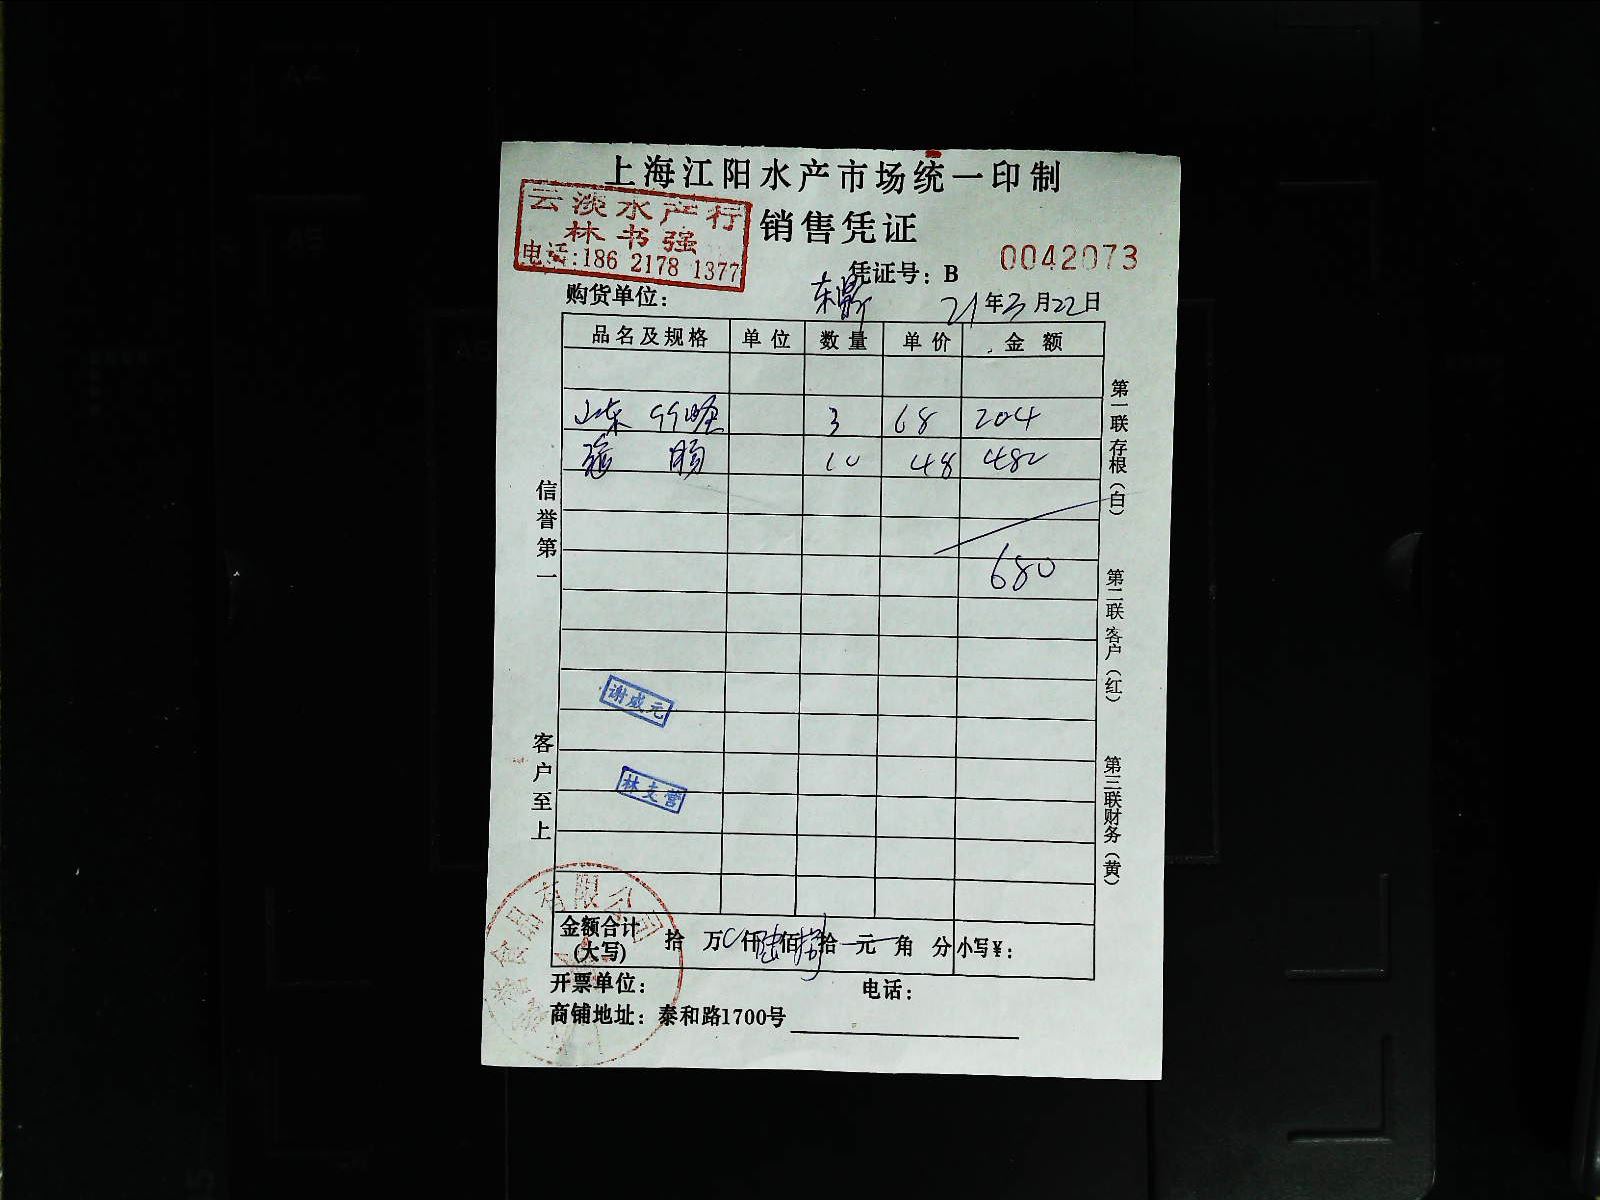 上海江阳水产市场统一印制
云淡水产行
林书强
电话:186 2178 1377
销售凭证
凭证号: B 0042073
购货单位: 东鼎
21年3月22日
品名及规格 单位 数量 单价 金额
山东 3 68 204
10 48 480
680
谢咸元
林支营
信誉第一
客户至上
第一联存根(白)
第二联客户(红)
第三联财务(黄)
食品有限公司
金额合计(大写) 拾 万 0 仟 陆 佰 捌 拾 元 角 分 小写¥:
开票单位: 电话:
商铺地址: 泰和路1700号